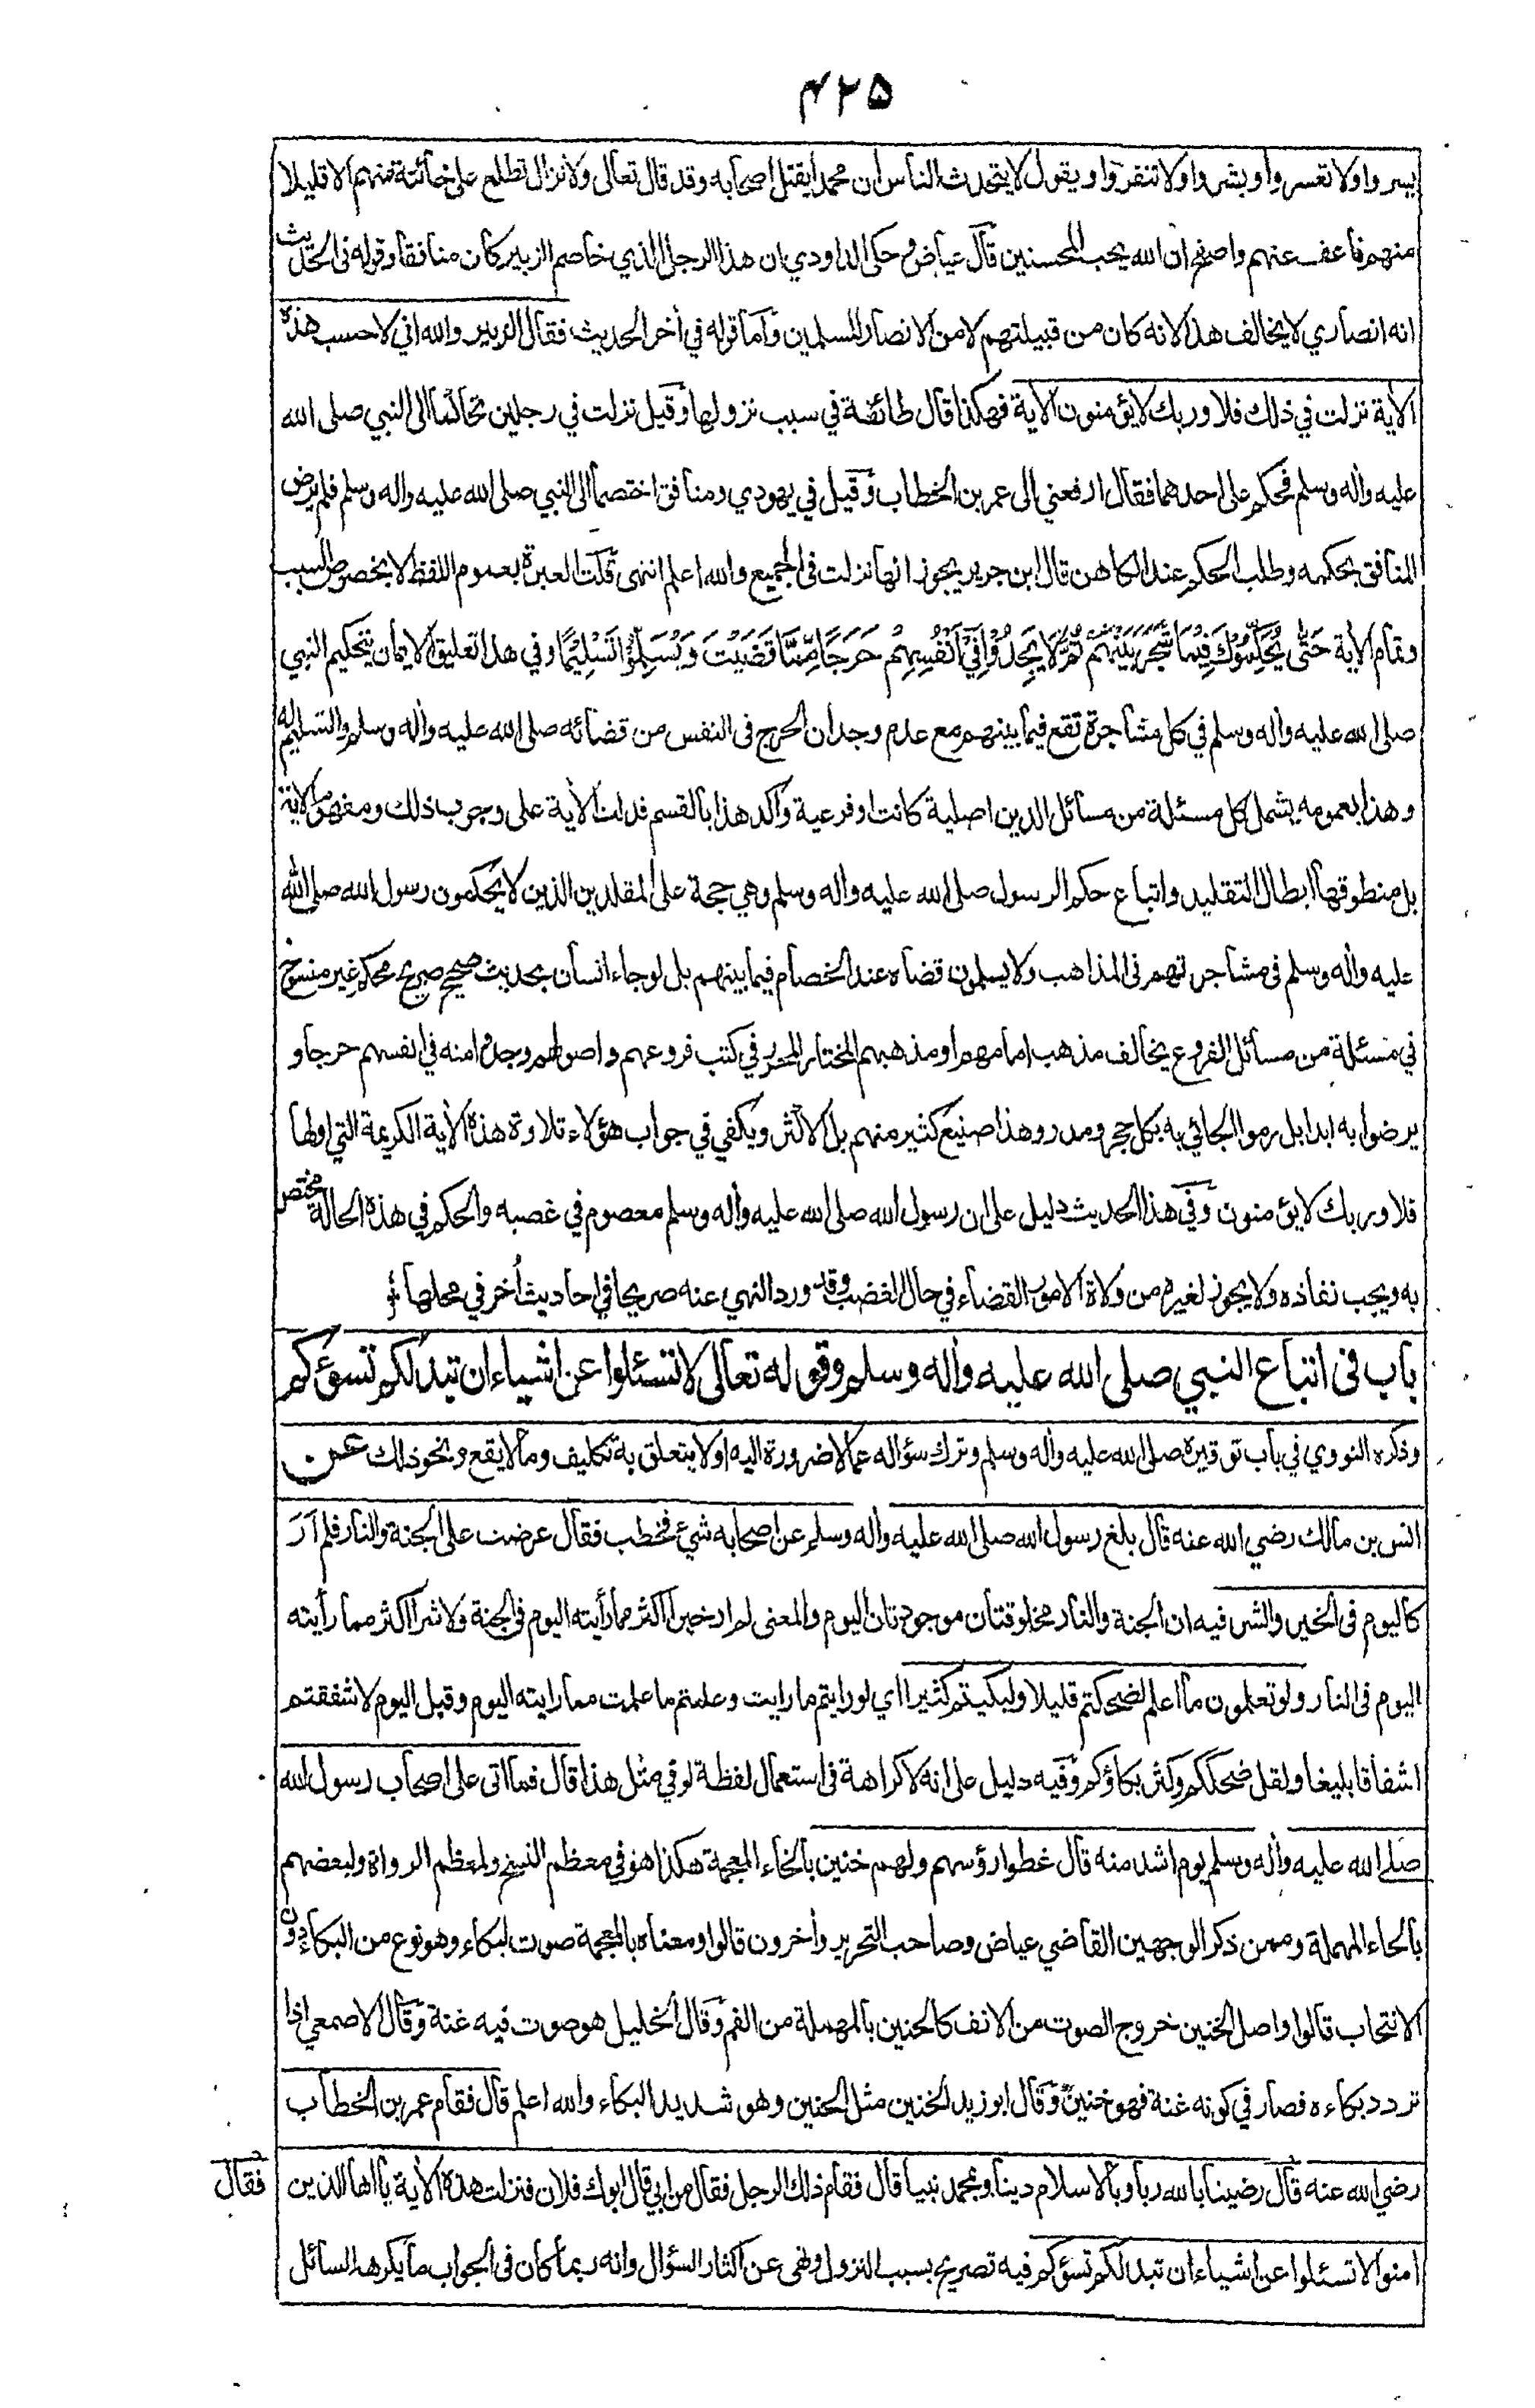 ۴۲۵
يسروا ولا تعسروا وبشروا ولا تنفروا ويقول لا يتحدث الناس ان محمدا يقتل اصحابه وقد قال تعالى ولا تزال تطلع على خائنة منهم الا قليلا
منهم فاعف عنهم واصفح ان الله يحب المحسنين قال عياض وحكى الداودي ان هذا الرجل الذي خاصم الزبير كان منافقا وقوله فى الحديث
انه انصاري لا يخالف هذا لانه كان من قبيلتهم لا من الانصار المسلمين واما قوله في أخر الحديث فقال الزبير والله اني لاحسب هذه
الأية نزلت في ذلك فلا وربك لا يؤمنون الأية فهكذا قال طائفة في سبب نزولها وقيل نزلت في رجلين تحاكما الى النبي صلى الله
عليه وأله وسلم فحكم على احدهما فقال ارفعني الى عمر بن الخطاب وقيل في يهودي ومنافق اختصما الى النبي صلى الله عليه واله وسلم فلم يرض
المنافق بحكمه وطلب الحكم عند الكاهن قال ابن جرير يجوز انها نزلت فى الجميع والله اعلم انتهى قلت العبرة بعموم اللفظ لا بخصوص السبب
وتمام الأية حَتّٰى يُحَكِّمُوْكَ فِيْمَا شَجَرَ بَيْنَهُمْ ثُمَّ لَا يَجِدُوْا فِيْ اَنْفُسِهِمْ حَرَجًا مِّمَّا قَضَيْتَ وَيُسَلِّمُوْا تَسْلِيْمًا وفي هذا تعليق الايمان بتحكيم النبي
صلى الله عليه وأله وسلم في كل مشاجرة تقع فيما بينهم مع عدم وجدان الحرج فى النفس من قضائه صلى الله عليه وأله وسلم والتسليم له
وهذا بعمومه يشمل كل مسئلة من مسائل الدين اصلية كانت او فرعية واكد هذا بالقسم فدلت الأية على وجوب ذلك ومفهوم الاية
بل منطوقها ابطال التقليد واتباع حكم الرسول صلى الله عليه واله وسلم وهي حجة على المقلدين الذين لا يحكمون رسول الله صلى الله
عليه وأله وسلم فى مشاجرتهم فى المذاهب ولا يسلمون قضاه عند الخصام فيما بينهم بل لو جاء انسان بحديث صحيح صريح محكم غير منسوخ
في مسئلة من مسائل الفروع يخالف مذهب امامهم او مذهبهم المختار المحرر في كتب فروعهم واصولهم وجدوا منه في انفسهم حرجا و
يرضوا به ابدا بل رموا الجائي به بكل حجر ومدر وهذا صنيع كثير منهم بل الاكثر ويكفي في جواب هؤلاء تلاوة هذه الأية الكريمة التي اولها
فلا وربك لا يؤمنون وفي هذا الحديث دليل على ان رسول الله صلى الله عليه وأله وسلم معصوم في غصبه والحكم في هذه الحالة مختص
به ويجب نفاذه ولا يجوز لغيره من ولاة الامور القضاء في حال الغضب وقد ورد النهي عنه صريحا في احاديث أخر في محلها
باب فى اتباع النبي صلى الله عليه وأله وسلم وقوله تعالى لا تسئلوا عن اشياء ان تبد لكم تسؤكم
وذكره النووي في باب توقيره صلى الله عليه وأله وسلم وترك سؤاله عما لا ضرورة اليه او لا يتعلق به تكليف وما لا يقع ونحو ذلك عن
انس بن مالك رضي الله عنه قال بلغ رسول الله صلى الله عليه وأله وسلم عن اصحابه شيء فخطب فقال عرضت على الجنة والنار فلم أرَ
كاليوم فى الخير والشر فيه ان الجنة والنار مخلوقتان موجودتان اليوم والمعنى لم ار خيرا اكثر مما رأيته اليوم فى الجنة ولا شرا اكثر مما رأيته
اليوم فى النار ولو تعلمون ما اعلم لضحكتم قليلا ولبكيتم كثيرا اي لو رايتم ما رايت وعلمتم ما علمت مما رايته اليوم وقبل اليوم لاشفقتم
اشفاقا بليغا ولقل ضحككم وكثر بكاؤكم وفيه دليل على انه لا كراهة فى استعمال لفظة لو في مثل هذا قال فما اتى على اصحاب رسول الله
صلى الله عليه وأله وسلم يوم اشد منه قال غطوا رؤسهم ولهم خنين بالخاء المعجمة هكذا هو في معظم النسخ ولمعظم الرواة ولبعضهم
بالحاء المهملة وممن ذكر الوجهين القاضي عياض وصاحب التحرير وأخرون قالوا ومعناه بالمعجمة صوت البكاء وهو نوع من البكاء دون
الانتحاب قالوا واصل الخنين خروج الصوت من الانف كالحنين بالمهملة من الفم وقال الخليل هو صوت فيه غنة وقال الاصمعي اذا
تردد بكاءه فصار في كونه غنة فهو خنين وقال ابو زيد الخنين مثل الحنين وهو شديد البكاء والله اعلم قال فقام عمر بن الخطاب
رضي الله عنه قال رضينا بالله ربا وبالاسلام دينا وبمحمد نبيا قال فقام ذلك الرجل فقال من ابي قال ابوك فلان فنزلت هذه الأية يا ايها الذين
أمنوا لا تسئلوا عن اشياء ان تبد لكم تسؤكم فيه تصريح بسبب النزول ونهى عن اكثار السؤال وانه ربما كان فى الجواب ما يكرهه السائل
فقال